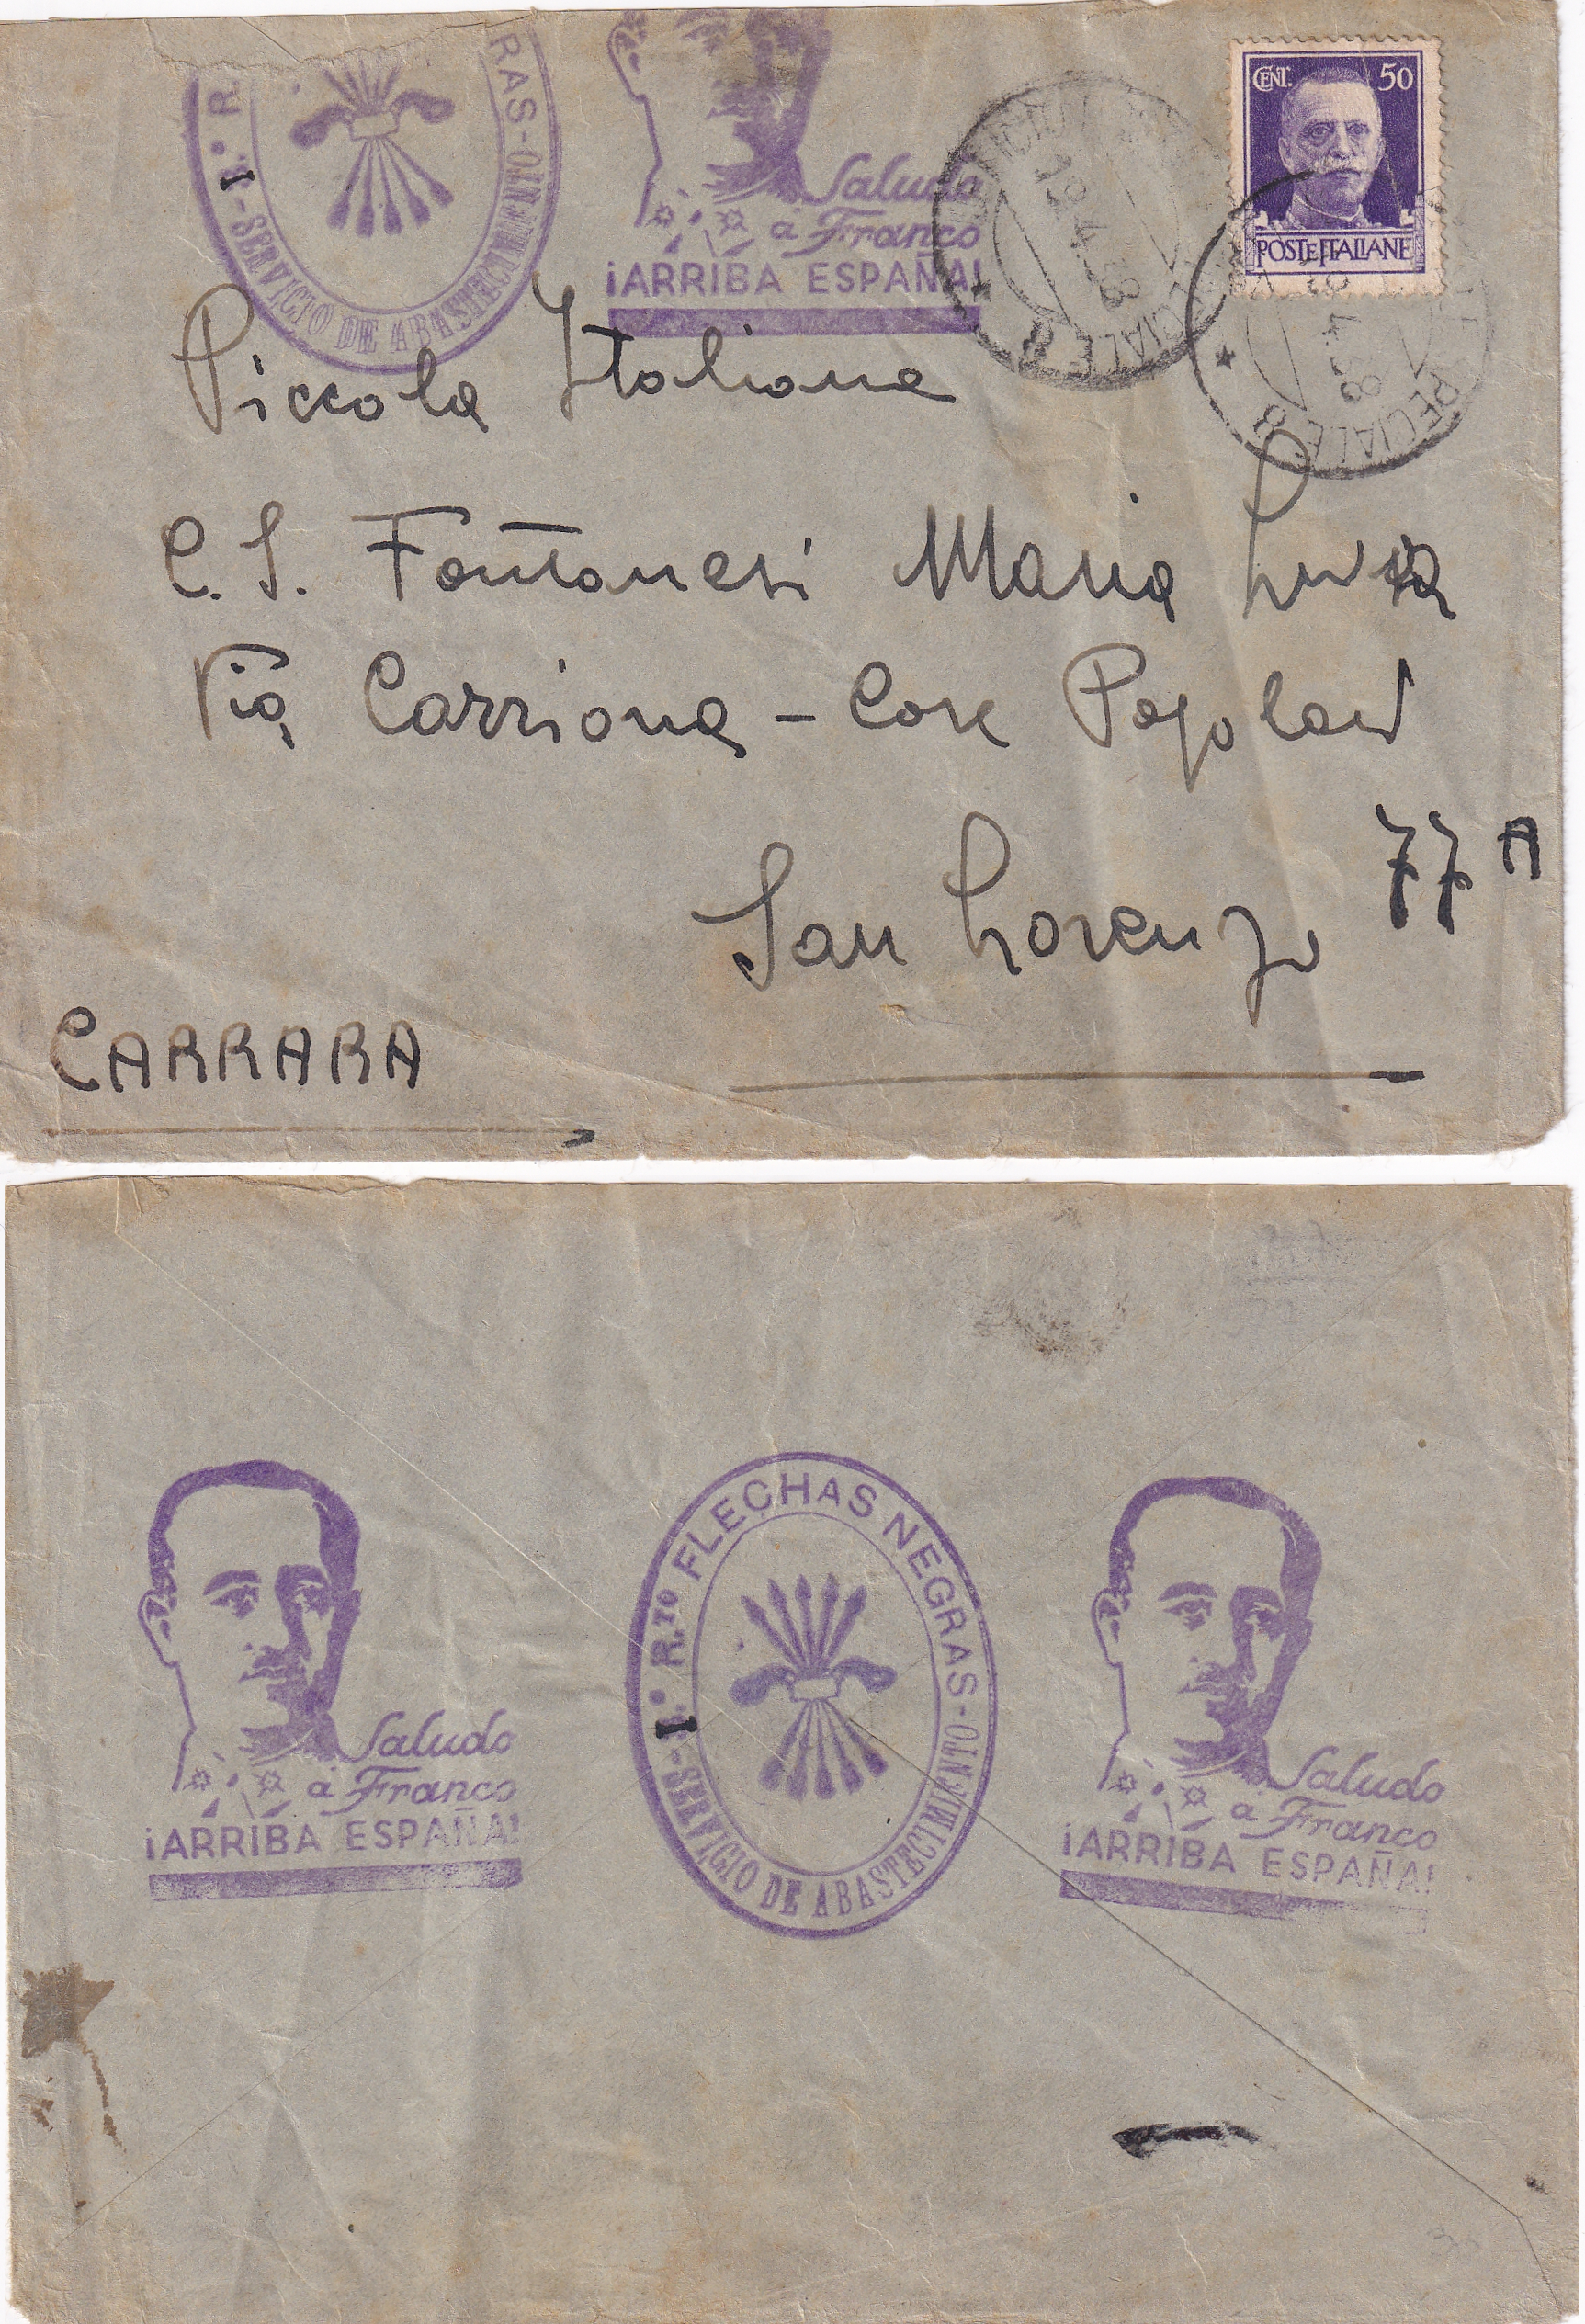 1º R.
RAS-
SERVICIO DE ABASTECIMIENTO
Saludo
a Franco
¡ARRIBA ESPAÑA!
19.4.38
SPECIALE 8
CENT. 50
POSTE ITALIANE
4.38
SPECIALE 8
Piccola Italiana
C. S. Fontanesi Maria
Via Carriona - Case Popolari
77 A
San Lorenzo
CARRARA
Saludo
a Franco
¡ARRIBA ESPAÑA!
1º R.TO FLECHAS NEGRAS -
SERVICIO DE ABASTECIMIENTO
Saludo
a Franco
¡ARRIBA ESPAÑA!